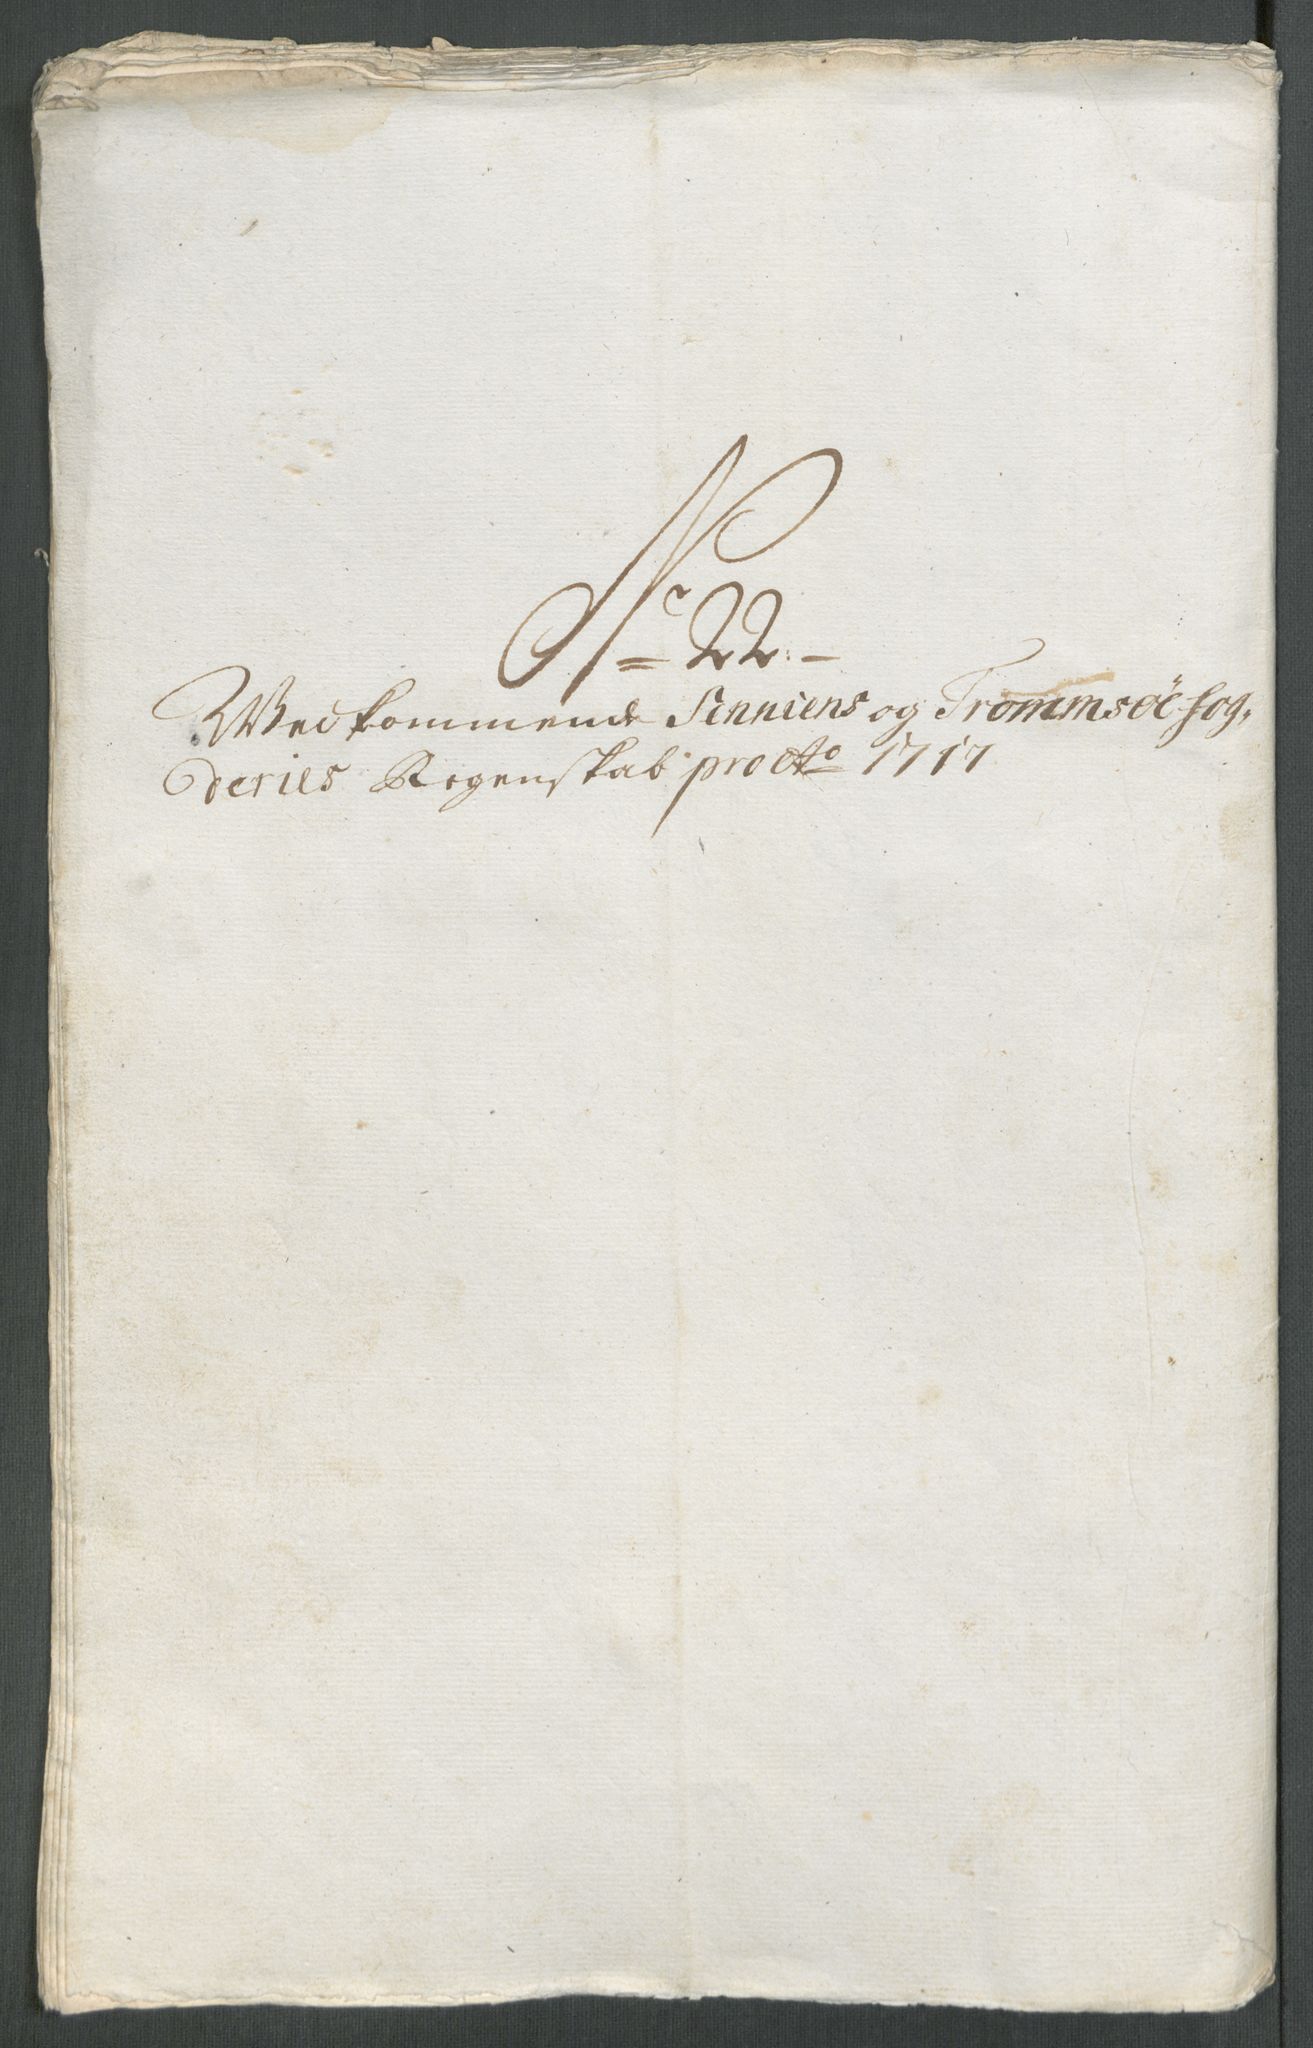 No 22.
Wedkommende Senniens og Trommsöe fog,
deries Regenskab pro Ao 1717